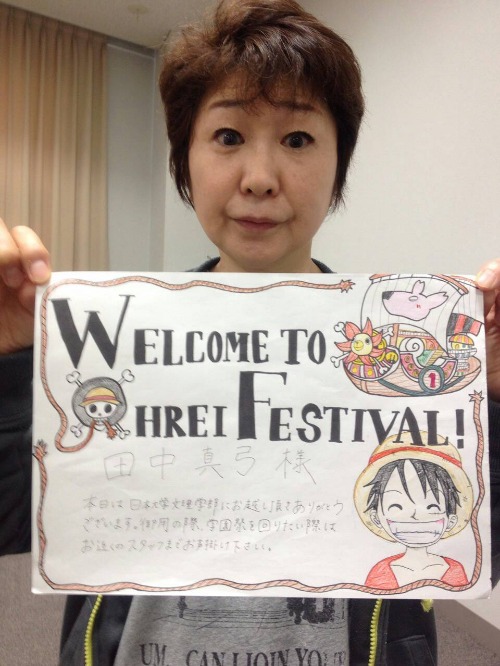 WELCOME TO
OHREI FESTIVAL!
田中真弓 様
本日は日本大学文理学部にお越し頂きありがとう
ございます。御用の際、学園祭を回りたい際は
お近くのスタッフまでお声掛け下さい。
1
UM, CAN I JOIN YO